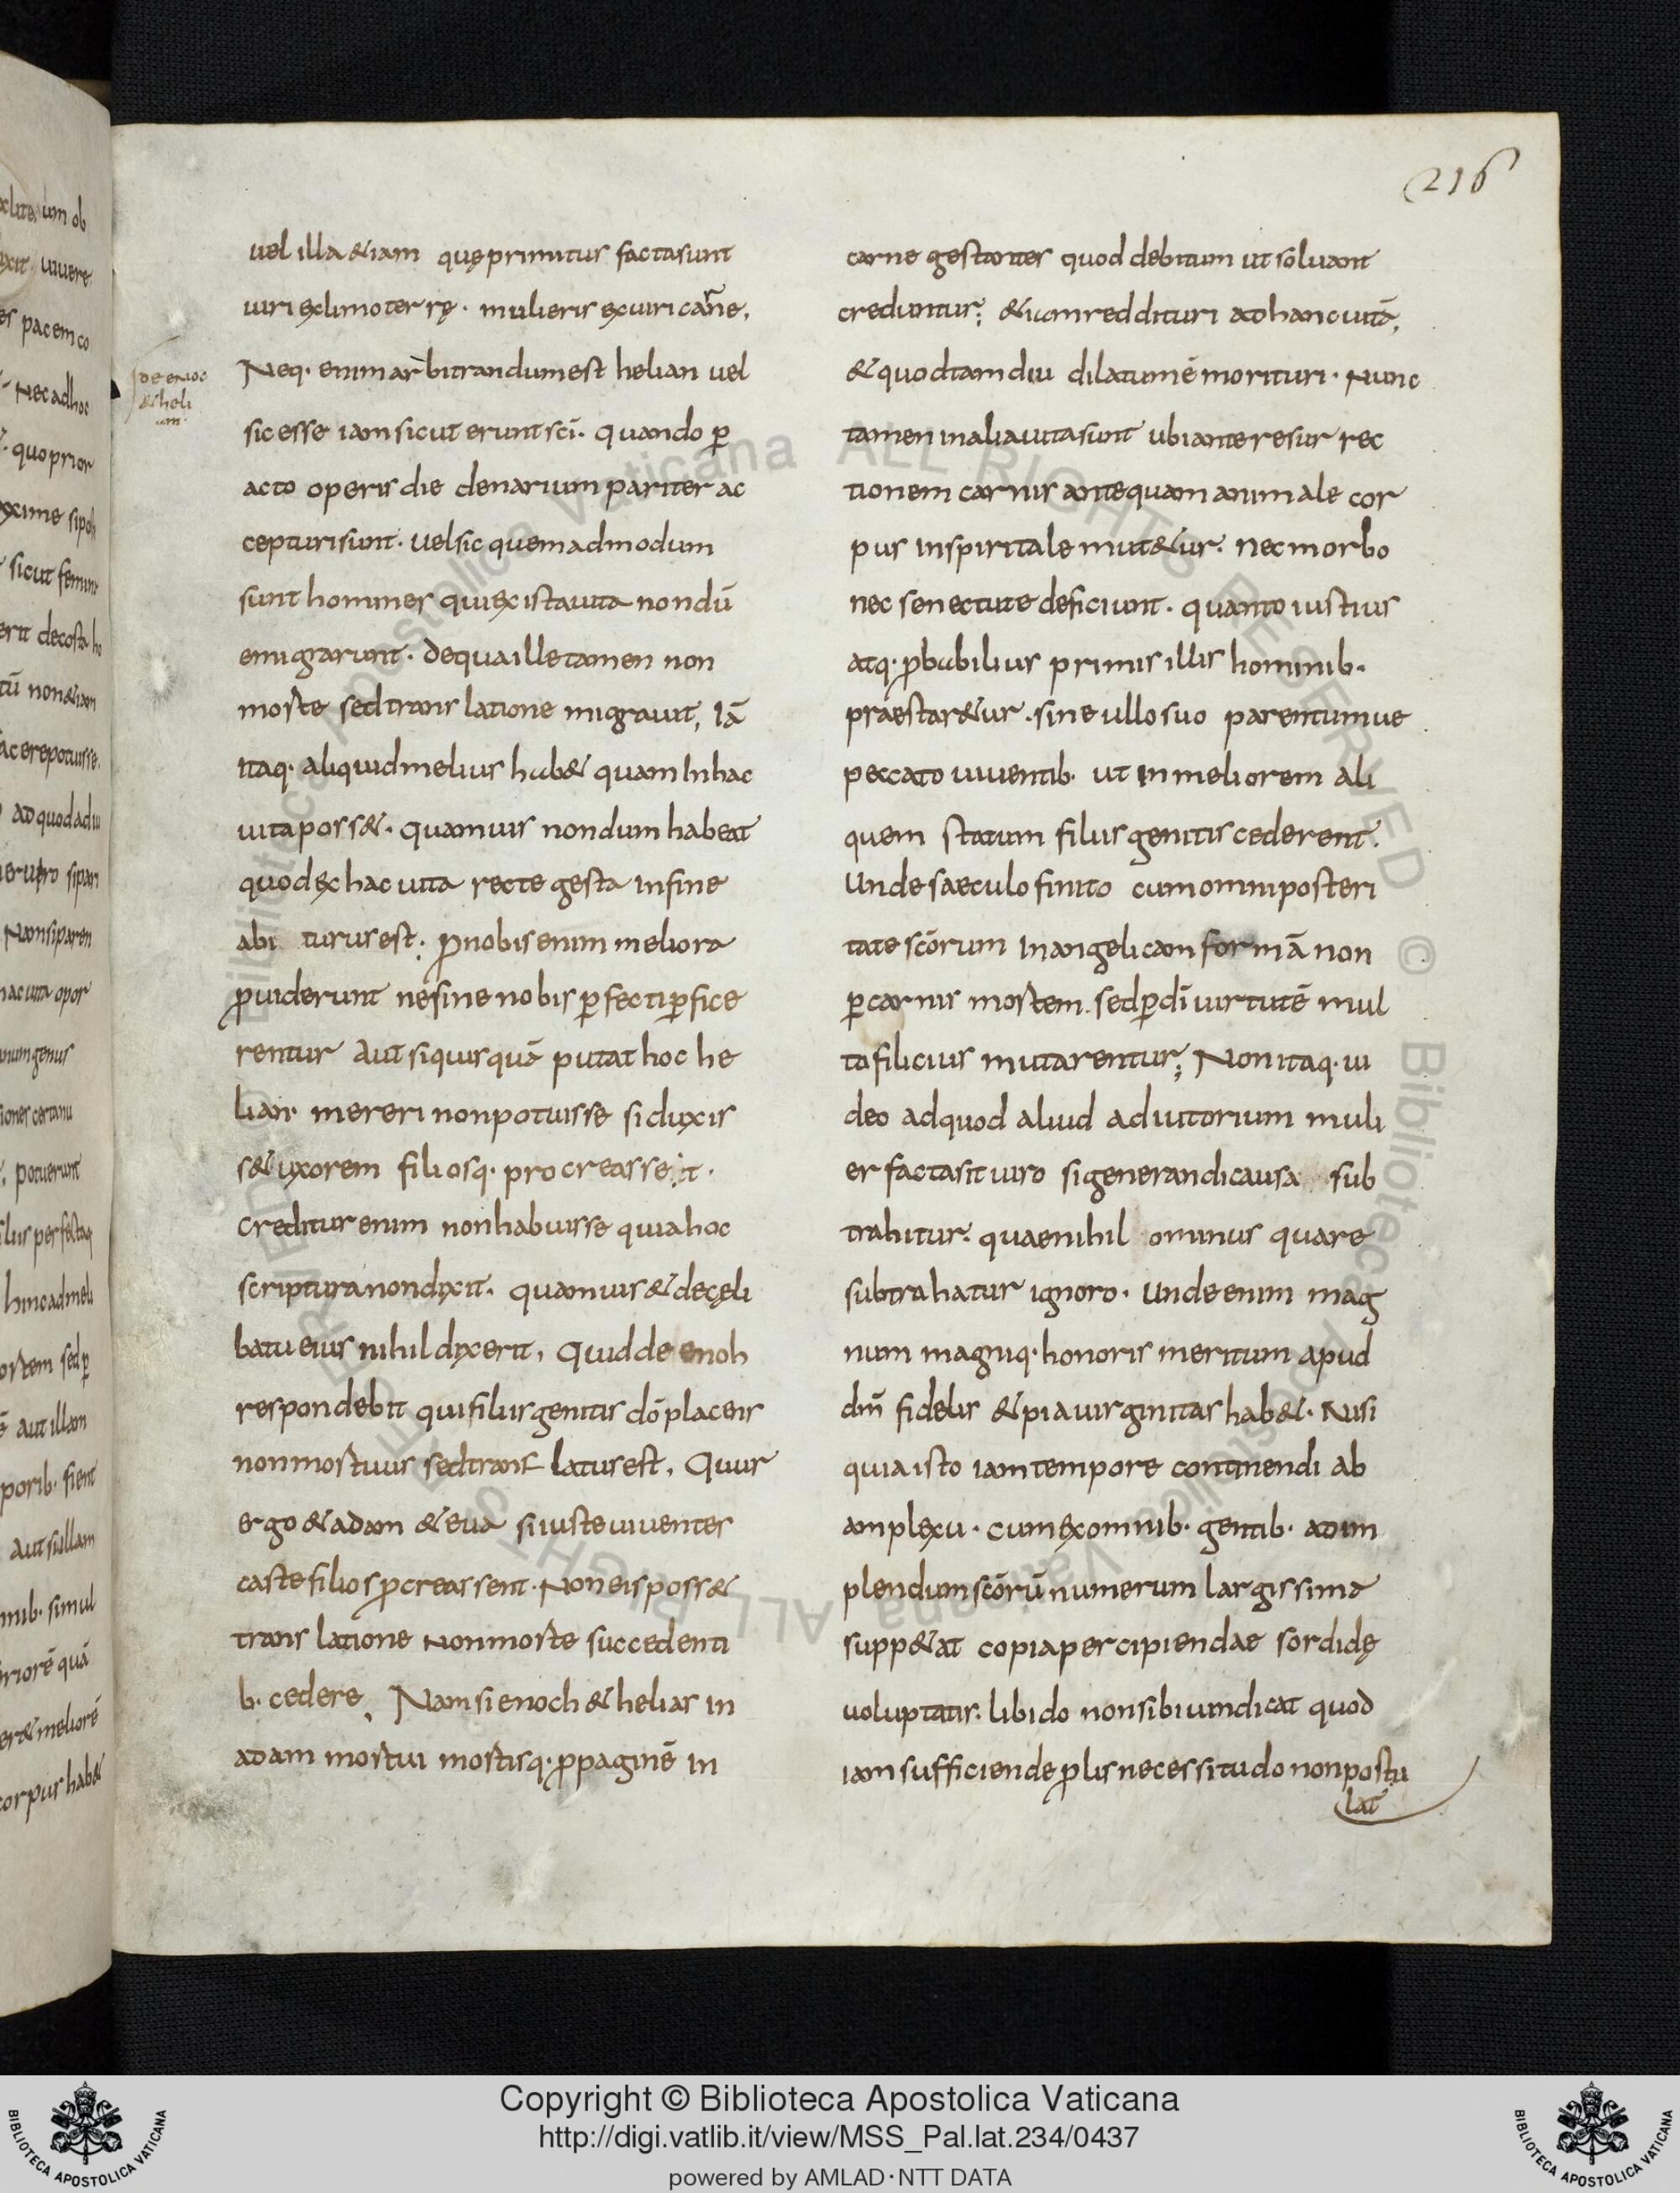 216
uel illa &iam quę primitus facta sunt
uiri ex limo terrę · mulieris ex uiri carne,
de enoc
& heli
am
Neq· enim arbitrandum est helian uel
sic esse iam sicut erunt sc̄i· quando ꝑ
acto operis die denarium pariter ac
cepturi sunt· uel sic quemadmodum
sunt homines qui ex ista uita nondū
emigrarunt· de qua ille tamen non
morte sed translatione migrauit, Iā
itaq· aliquid melius hab& quam in hac
uita poss&· quamuis nondum habeat
quod ex hac uita recte gesta in fine
abi turus est; ꝓ nobis enim meliora
ꝓuiderunt ne sine nobis ꝑfecti ꝑfice
rentur aut si quisquā putat hoc he
lian mereri non potuisse si duxis
s& uxorem filiosq· procreasse.it·
creditur enim non habuisse quia hoc
scriptura non dixit· quamuis & de cęli
batu eius nihil dixerit, Quid de enoh
respondebit qui filiis genitis dō placens
non mortuus sed translatus est, Quur
ergo & adam & eua si iuste uiuentes
caste filios ꝓcreassent· Non eis poss&
translatione non morte succedenti
b· cedere, Nam si enoch & helias in
adam mortui mortisq· ꝓpaginē in
carne gestantes quod debitum ut soluant
creduntur; & iam reddituri ad hanc uitā,
& quod tamdiu dilatum ē morituri· Nunc
tamen in alia uita sunt ubi ante resurrec
tionem carnis antequam animale cor
pus in spiritale mut&ur· nec morbo
nec senectute deficiunt· quanto iustius
atq· ꝓbabilius primis illis hominib·
praestar&ur· sine ullo suo parentumue
peccato uiuentib· ut in meliorem ali
quem statum filiis genitis cederent·
Unde saeculo finito cum omni posteri
tate sc̄orum in angelicam formā non
ꝑ carnis mortem· sed ꝑ dī uirtutē mul
to filicius mutarentur; Non itaq· ui
deo ad quod aliud adiutorium muli
er facta sit uiro si generandi causa sub
trahitur· quae nihil ominus quare
subtrahatur ignoro· Unde enim mag
num magniq· honoris meritum apud
dm̄ fidelis & pia uirginitas hab&· Nisi
quia isto iam tempore continendi ab
amplexu· cum ex omnib· gentib· ad im
plendum sc̄orū numerum largissima
supp&at copia percipiendae sordidę
uoluptatis· libido non sibi uindicat quod
iam sufficiende ꝓlis necessitudo non postu
lat
Copyright © Biblioteca Apostolica Vaticana
http://digi.vatlib.it/view/MSS_Pal.lat.234/0437
powered by AMLAD·NTT DATA